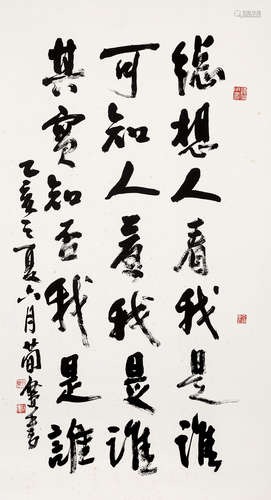 總想人看我是誰
可知人看我是誰
其實知否我是誰
乙亥之夏六月蘭齋書